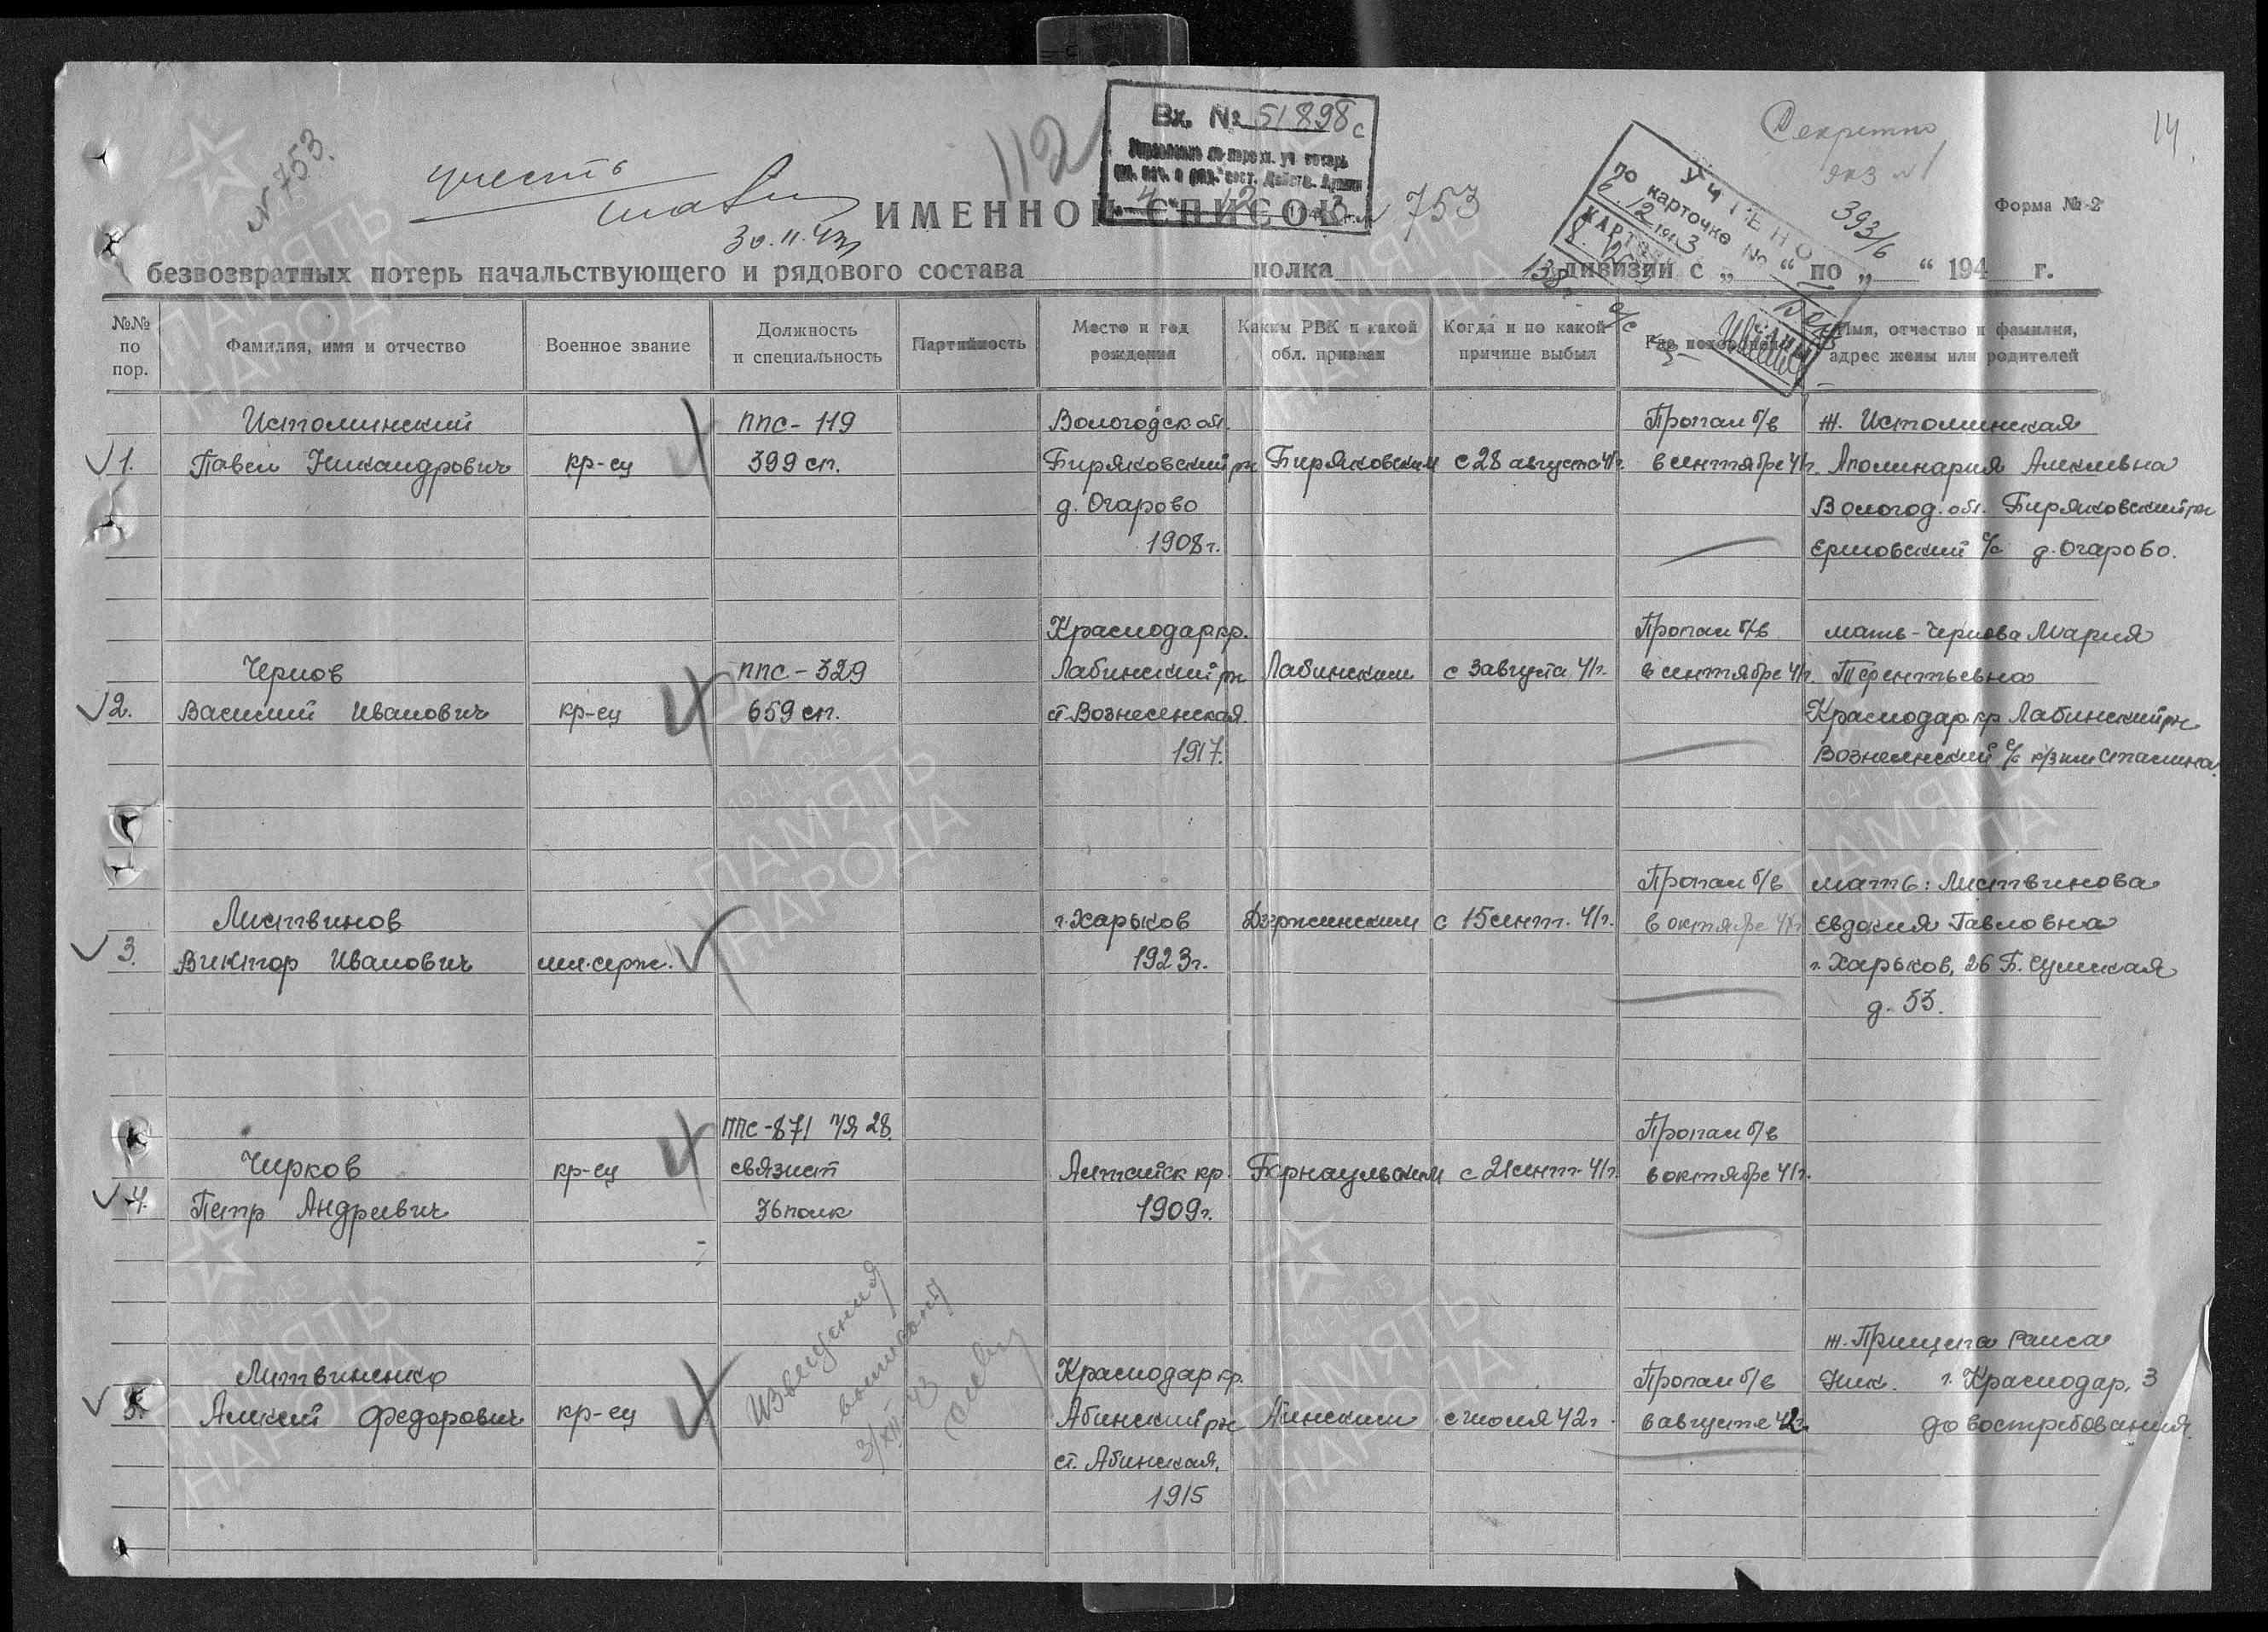 Вх. № 51898с
4 12 1943
№ 753.
учесть
30.11.43г
112
№ 753
УЧТЕНО
по карточке №
6.12.1943
393/6
КАРТ
8.
Секретно
экз №1
14.
Форма № 2
ИМЕННОЙ СПИСОК
безвозвратных потерь начальствующего и рядового состава полка дивизии с „ “ по „ “ 194 г.
№№ по пор.
Фамилия, имя и отчество
Военное звание
Должность и специальность
Партийность
Место и год рождения
Каким РВК и какой обл. призван
Когда и по какой причине выбыл
Где похоронен
Имя, отчество и фамилия, адрес жены или родителей
Истоминский ппс-119 Вологодск обл. Пропал б/в ж. Истоминская
1. Павел Никандрович кр-ец 399 сп. Биряковский рн Биряковским с 28 августа 41г. в сентябре 41г. Аполинария Алексевна
д. Огарово Вологод. обл. Биряковский рн
1908г. Ершовский с/с д. Огарово.
Краснодар кр. Пропал б/в мать-Чернова Мария
Чернов ппс-329 Лабинский рн Лабинским с 3 августа 41г. в сентябре 41г. Терентьевна
2. Василий Иванович кр-ец 659 сп. ст. Вознесенская Краснодар. кр Лабинский рн
1917. Вознесенский с/с к/з им Сталина.
Пропал б/в мать: Листвинова
Листвинов г. Харьков Дзержинским с 15 сент. 41г. в октябре 41г Евдокия Павловна
3. Виктор Иванович мл. серж. 1923г. г. Харьков, 26 Б. Сумская
д. 53.
ппс-871 п/я 28. Пропал б/в
Чирков кр-ец связист Алтайск кр. Барнаульским с 21 сент. 41г. в октябре 41г.
4. Петр Андревич 36 полк 1909г.
ж. Прищепа Раиса
Литвиненко Краснодар кр. Пропал б/в Ник. г. Краснодар, 3
5. Алексей Федорович кр-ец Абинский рн Абинским с июля 42г. в августе 42г. до востребования.
ст. Абинская,
1915
Извещения
высланы
3/XII-43
ПАМЯТЬ
НАРОДА
1941-1945